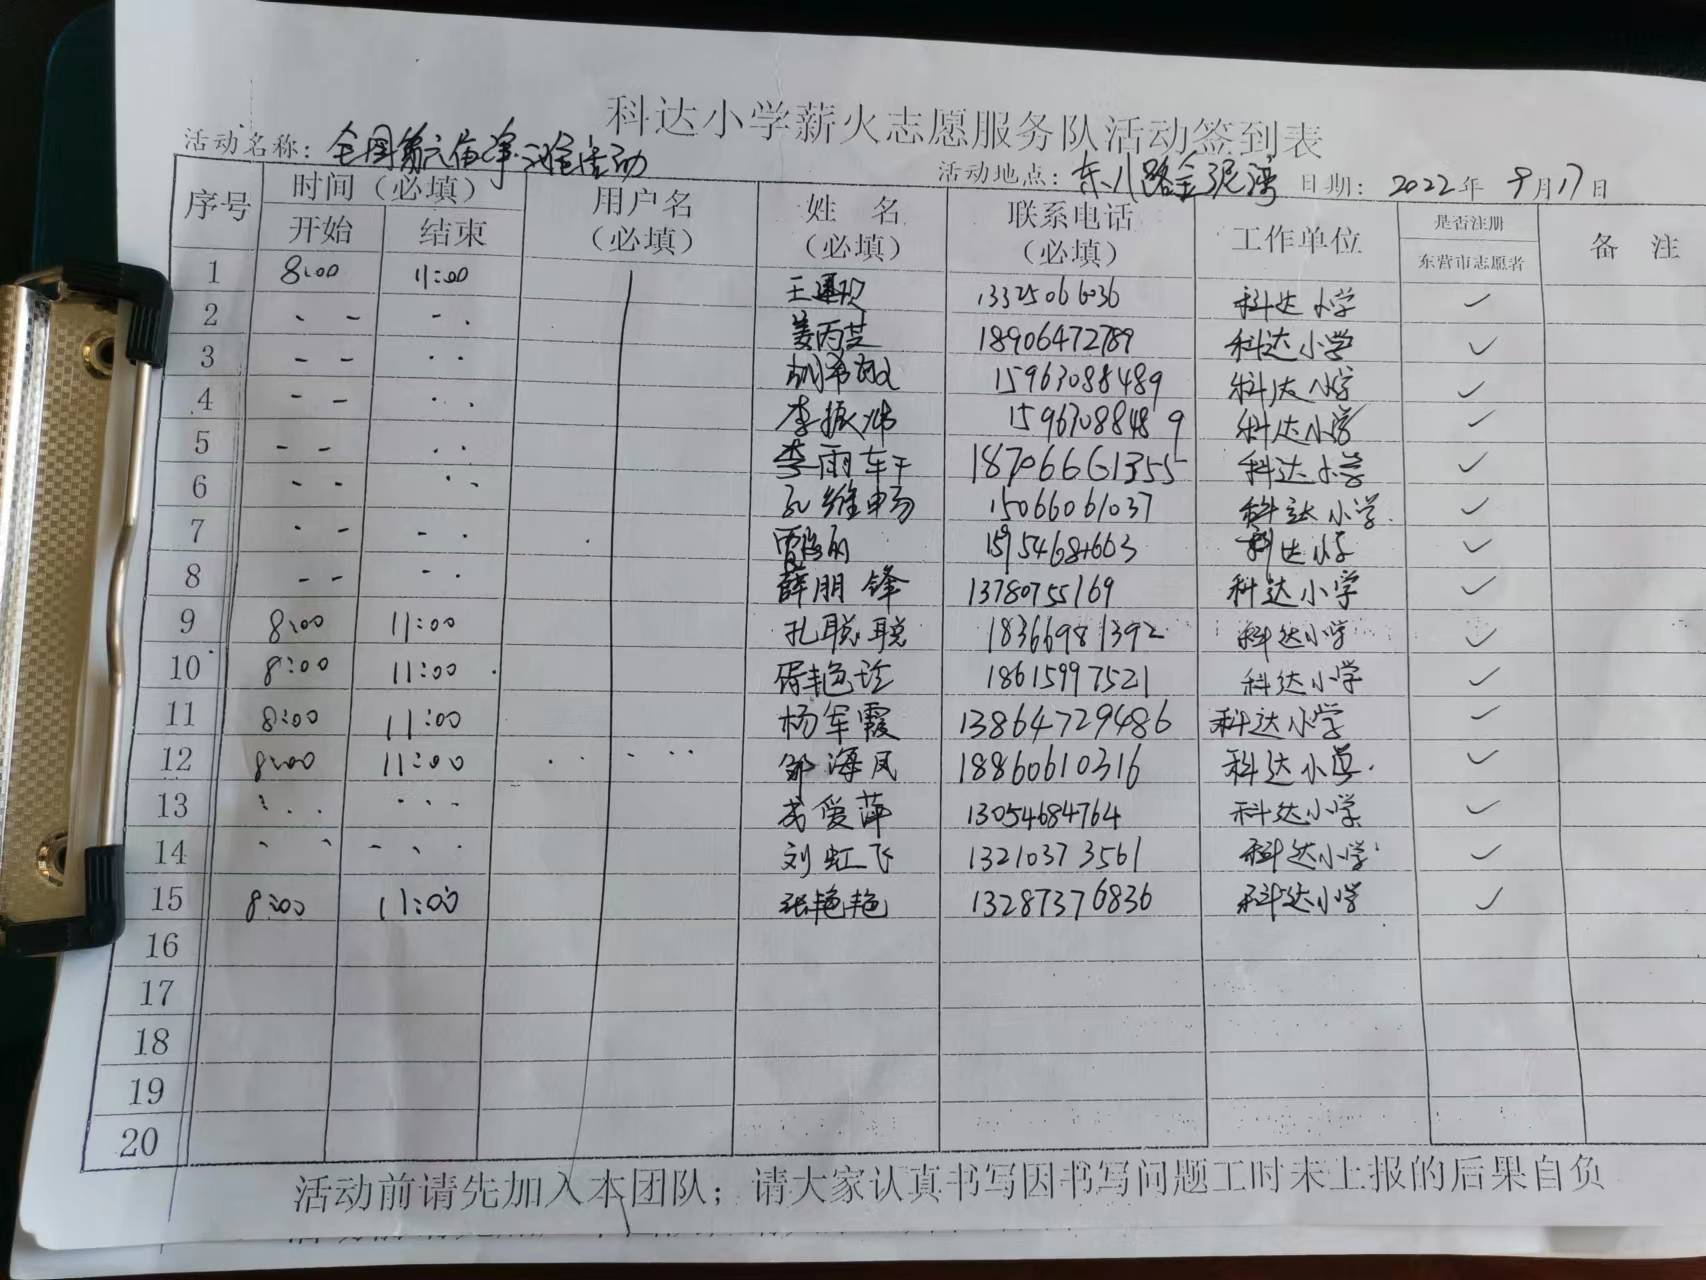 科达小学薪火志愿服务队活动签到表
活动名称: 全国第六届净滩活动 活动地点: 东八路金泥湾 日期: 2022年 9月17日
序号 时间（必填） 用户名（必填） 姓 名（必填） 联系电话（必填） 工作单位 是否注册东营市志愿者 备 注
开始 结束
1 8:00 11:00 13325066036 科达小学 ✓
2 姜丙芝 18906472789 科达小学 ✓
3 15963088489 科达小学 ✓
4 李振 15963088489 科达小学 ✓
5 李雨 18706661355 科达小学 ✓
6 孔维 15066061037 科达小学 ✓
7 科达小学 ✓
8 薛朋锋 13780755169 科达小学 ✓
9 8:00 11:00 孔聪聪 18366981392 科达小学 ✓
10 8:00 11:00 18615997521 科达小学 ✓
11 8:00 11:00 杨军霞 13864729486 科达小学 ✓
12 8:00 11:00 邹海凤 18860610316 科达小学 ✓
13 爱萍 13054684764 科达小学 ✓
14 刘虹飞 13210373561 科达小学 ✓
15 8:00 11:00 张艳艳 13287376836 科达小学 ✓
16
17
18
19
20
活动前请先加入本团队；请大家认真书写因书写问题工时未上报的后果自负